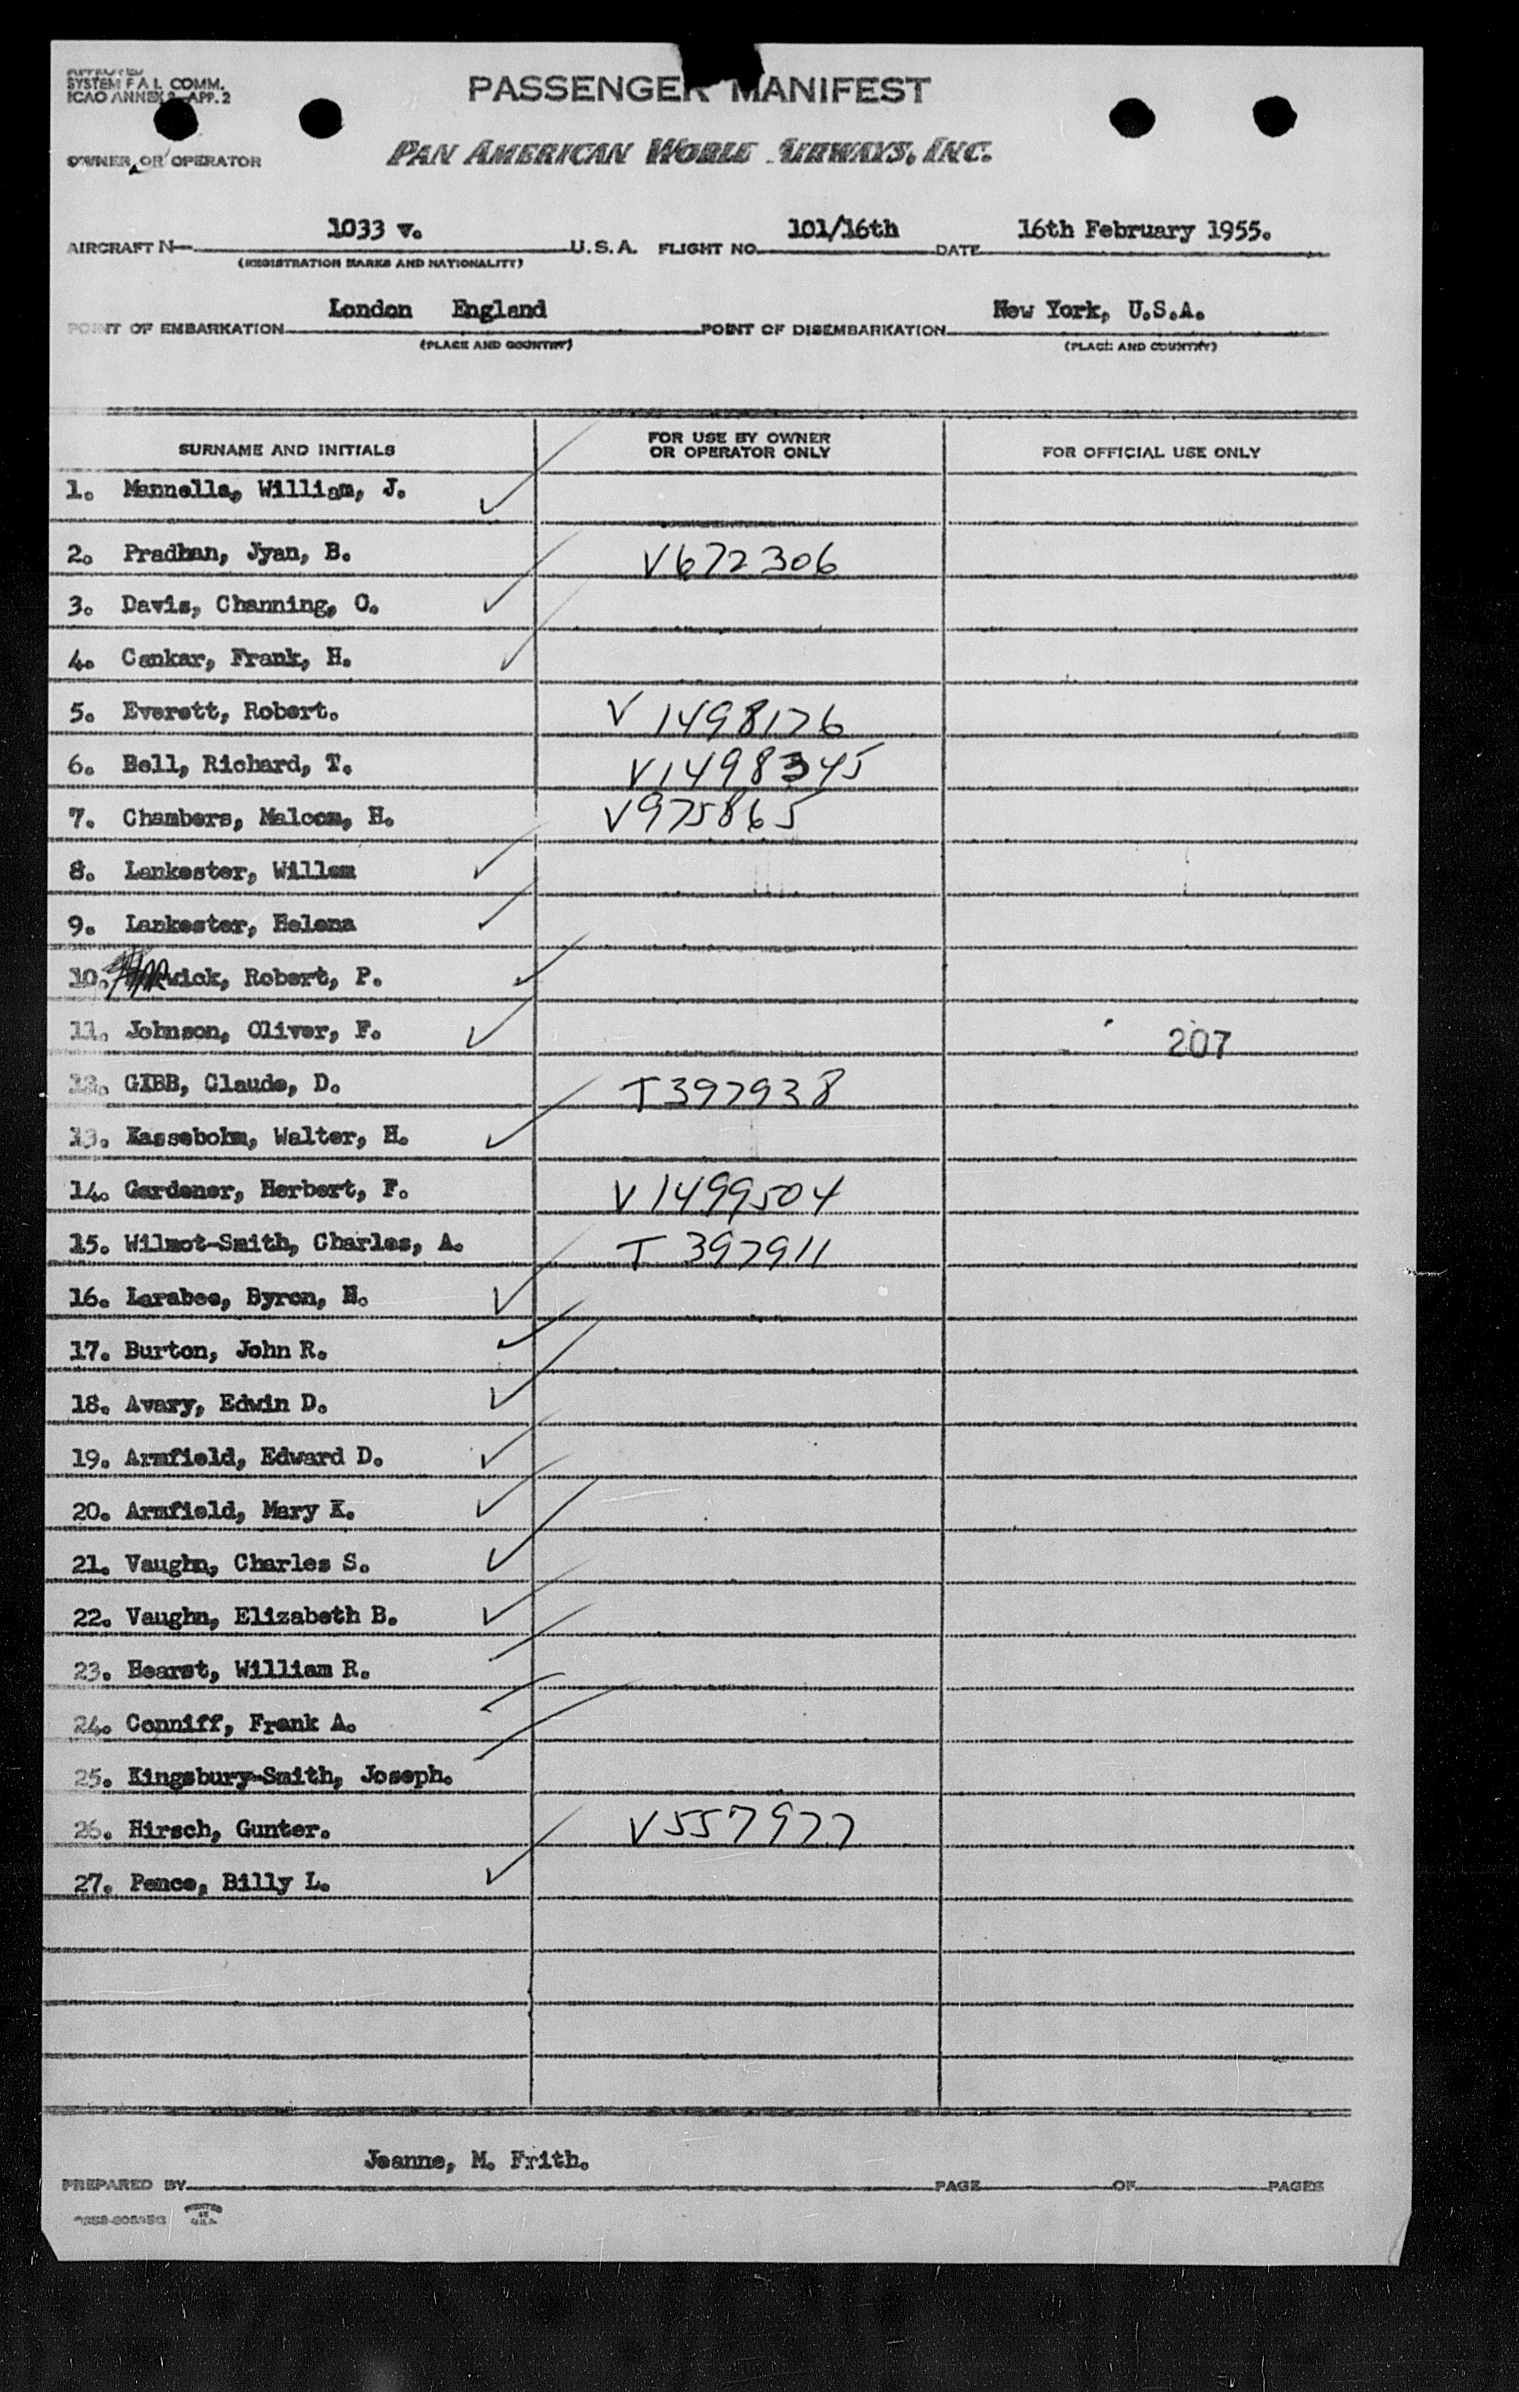 APPROVED
SYSTEM F A L COMM.
ICAO ANNEX 9 APP. 2
PASSENGER MANIFEST
OWNER OR OPERATOR PAN AMERICAN WORLD AIRWAYS, INC.
AIRCRAFT N— 1033 v. U.S.A. FLIGHT NO. 101/16th DATE 16th February 1955.
(REGISTRATION MARKS AND NATIONALITY)
POINT OF EMBARKATION London England POINT OF DISEMBARKATION New York, U.S.A.
(PLACE AND COUNTRY) (PLACE AND COUNTRY)
SURNAME AND INITIALS FOR USE BY OWNER OR OPERATOR ONLY FOR OFFICIAL USE ONLY
1. Mannella, William, J.
2. Pradhan, Jyan, B. V672306
3. Davis, Channing, C.
4. Cankar, Frank, H.
5. Everett, Robert. V 1498126
6. Bell, Richard, T. V1498345
7. Chambers, Malcom, H. V975865
8. Lankester, Willem
9. Lankester, Helena
10. wick, Robert, P.
11. Johnson, Oliver, F. 207
12. GIBB, Claude, D. T397938
13. Kassebohm, Walter, H.
14. Gardener, Herbert, F. V1499504
15. Wilmot-Smith, Charles, A. T 397911
16. Larabee, Byron, H.
17. Burton, John R.
18. Avary, Edwin D.
19. Armfield, Edward D.
20. Armfield, Mary K.
21. Vaughn, Charles S.
22. Vaughn, Elizabeth B.
23. Hearst, William R.
24. Conniff, Frank A.
25. Kingsbury-Smith, Joseph.
26. Hirsch, Gunter. V557977
27. Pence, Billy L.
Jeanne, M. Frith.
PREPARED BY PAGE OF PAGES
PRINTED IN U.S.A.